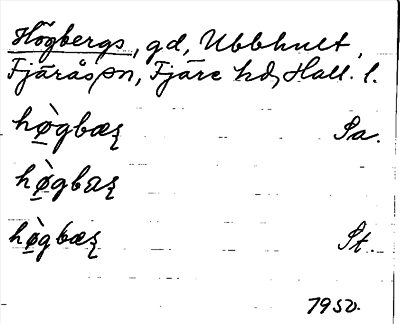 Högbergs, gd, Ubbhult,
Fjärås sn, Fjäre hd, Hall. l.
hø̀gbæʂ Sa.
hø̀gbaʂ
hø̀gbæʂ St.
1950.